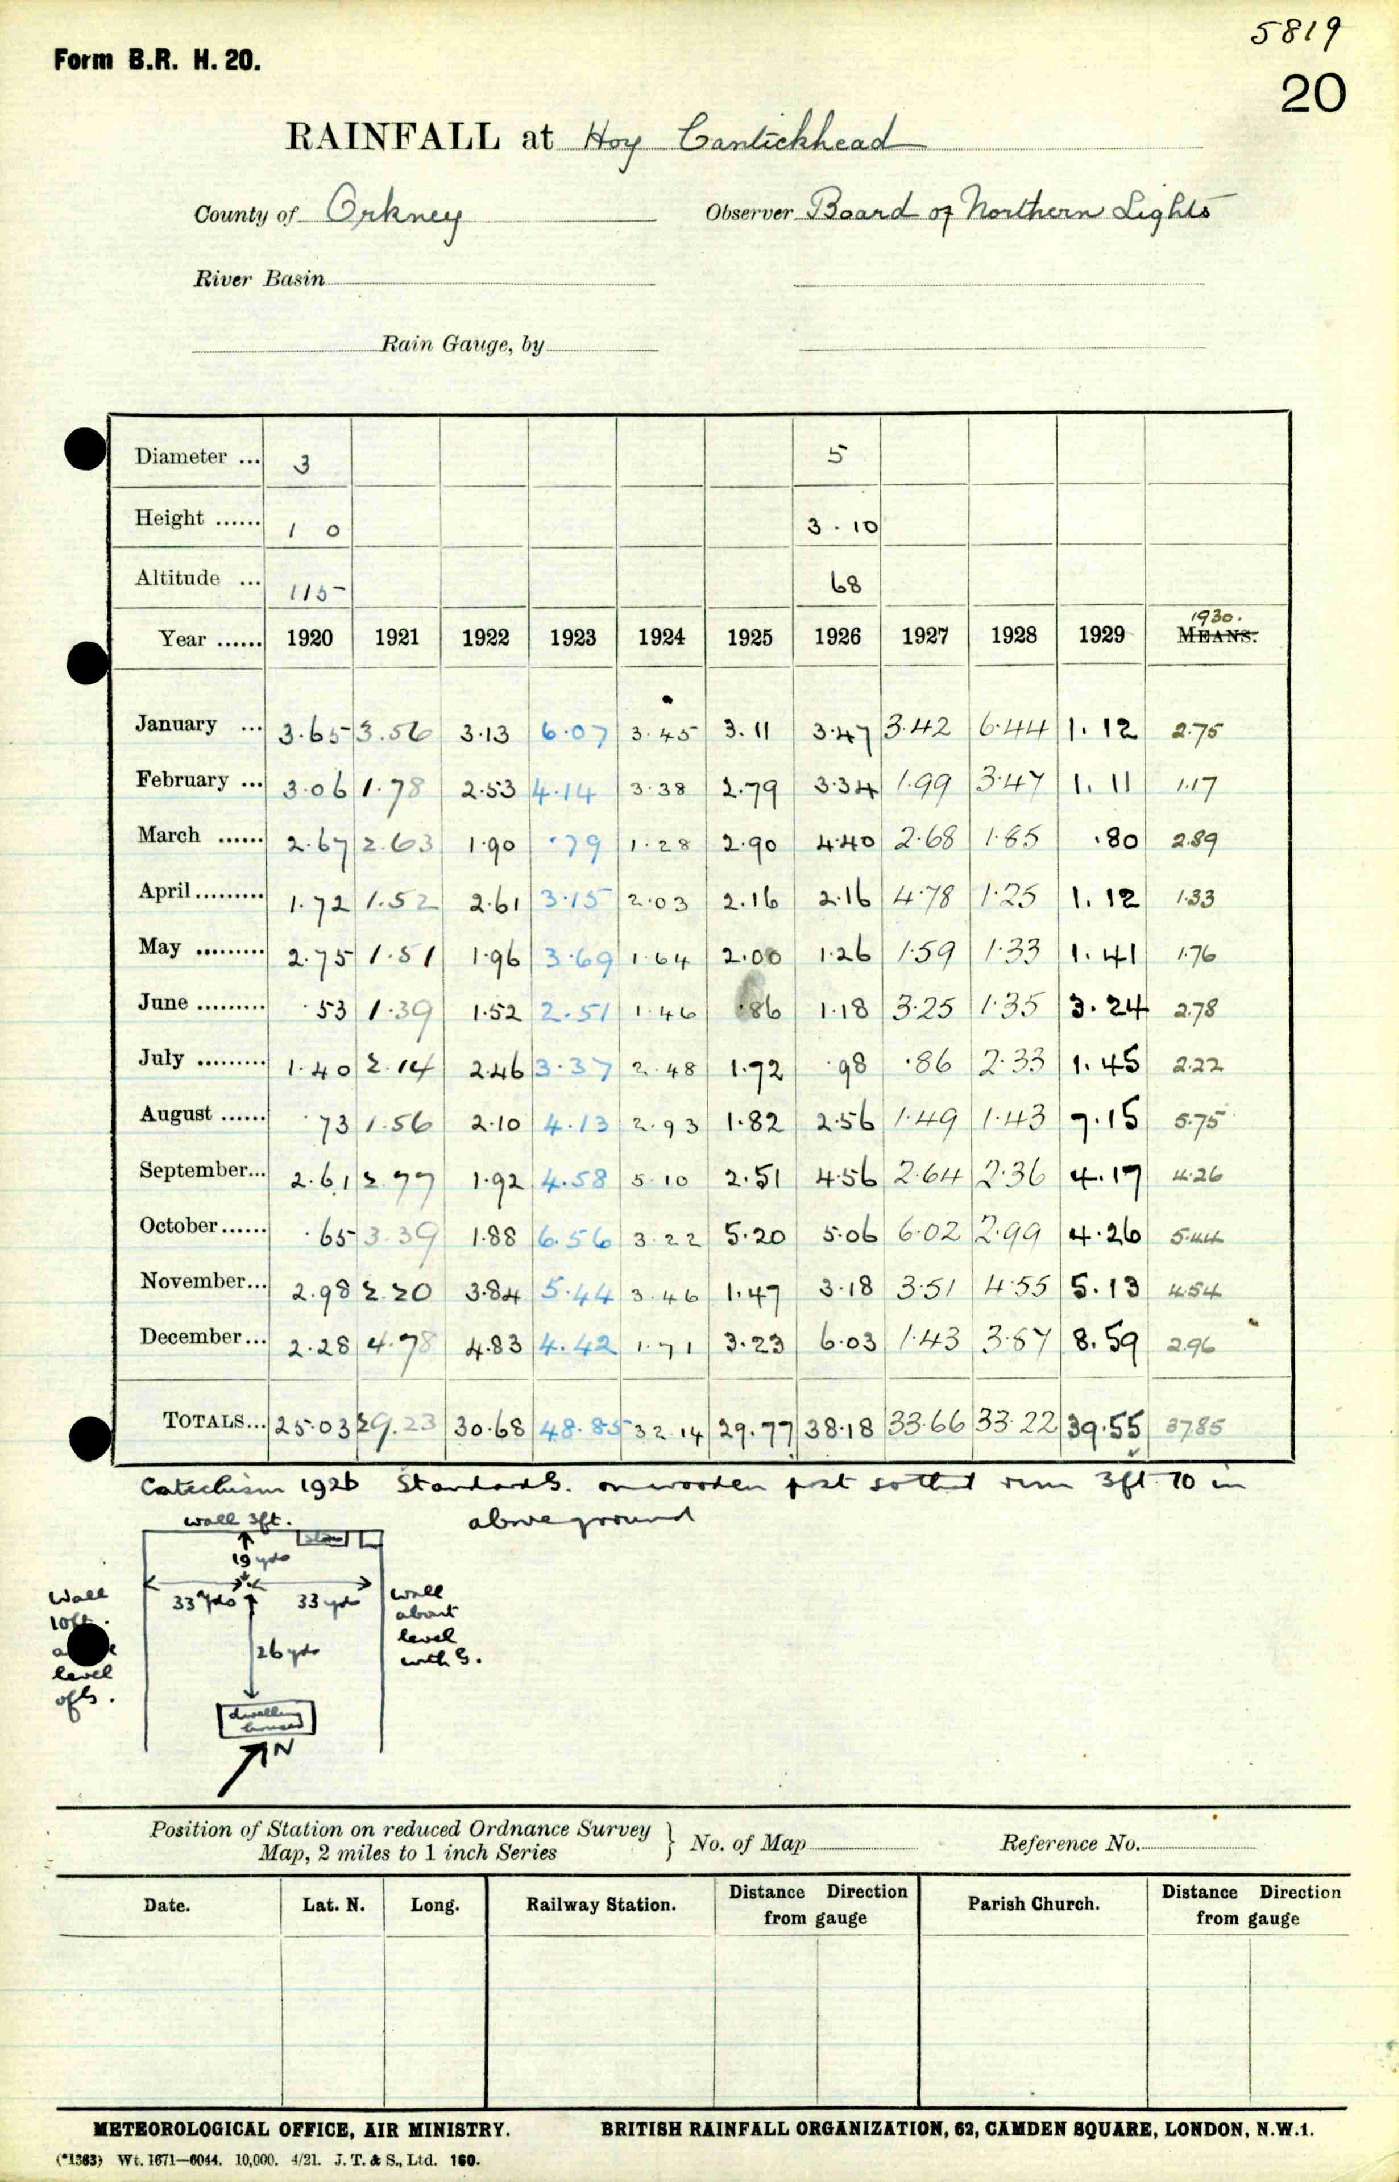 5819
Form B.R. H. 20.
20
RAINFALL at Hoy Cantickhead
County of Orkney Observer Board of Northern Lights
River Basin
Rain Gauge, by
Diameter ... 3 5
Height ...... 1 0 3 . 10
Altitude ... 115 68
1930.
Year ...... 1920 1921 1922 1923 1924 1925 1926 1927 1928 1929 MEANS.
January ... 3.65 3.56 3.13 6.07 3.45 3.11 3.47 3.42 6.44 1.12 2.75
February ... 3.06 1.78 2.53 4.14 3.38 2.79 3.34 1.99 3.47 1.11 1.17
March ...... 2.67 2.63 1.90 .79 1.28 2.90 4.40 2.68 1.85 .80 2.89
April ......... 1.72 1.52 2.61 3.15 2.03 2.16 2.16 4.78 1.25 1.12 1.33
May ......... 2.75 1.51 1.96 3.69 1.64 2.00 1.26 1.59 1.33 1.41 1.76
June ......... .53 1.39 1.52 2.51 1.46 .86 1.18 3.25 1.35 3.24 2.78
July ......... 1.40 2.14 2.46 3.37 2.48 1.72 .98 .86 2.33 1.45 2.22
August ...... .73 1.56 2.10 4.13 2.93 1.82 2.56 1.49 1.43 7.15 5.75
September... 2.61 2.77 1.92 4.58 5.10 2.51 4.56 2.64 2.36 4.17 4.26
October...... .65 3.39 1.88 6.56 3.22 5.20 5.06 6.02 2.99 4.26 5.44
November... 2.98 2.20 3.84 5.44 3.46 1.47 3.18 3.51 4.55 5.13 4.54
December... 2.28 4.78 4.83 4.42 1.71 3.23 6.03 1.43 3.87 8.59 2.96
TOTALS... 25.03 29.23 30.68 48.85 32.14 29.77 38.18 33.66 33.22 39.55 37.85
Catechism 1926 Standard G. on wooden post so that rim 3ft 10 in
above ground
wall 3ft.
19 yds
33 yds 33 yds
Wall
10ft.
level
of G.
wall
about
level
with G.
26 yds
dwelling
houses
N
Position of Station on reduced Ordnance Survey
Map, 2 miles to 1 inch Series } No. of Map Reference No.
Date. Lat. N. Long. Railway Station. Distance Direction from gauge Parish Church. Distance Direction from gauge
METEOROLOGICAL OFFICE, AIR MINISTRY. BRITISH RAINFALL ORGANIZATION, 62, CAMDEN SQUARE, LONDON, N.W.1.
(*1363) Wt. 1671—6044. 10,000. 4/21. J. T. & S., Ltd. 160.